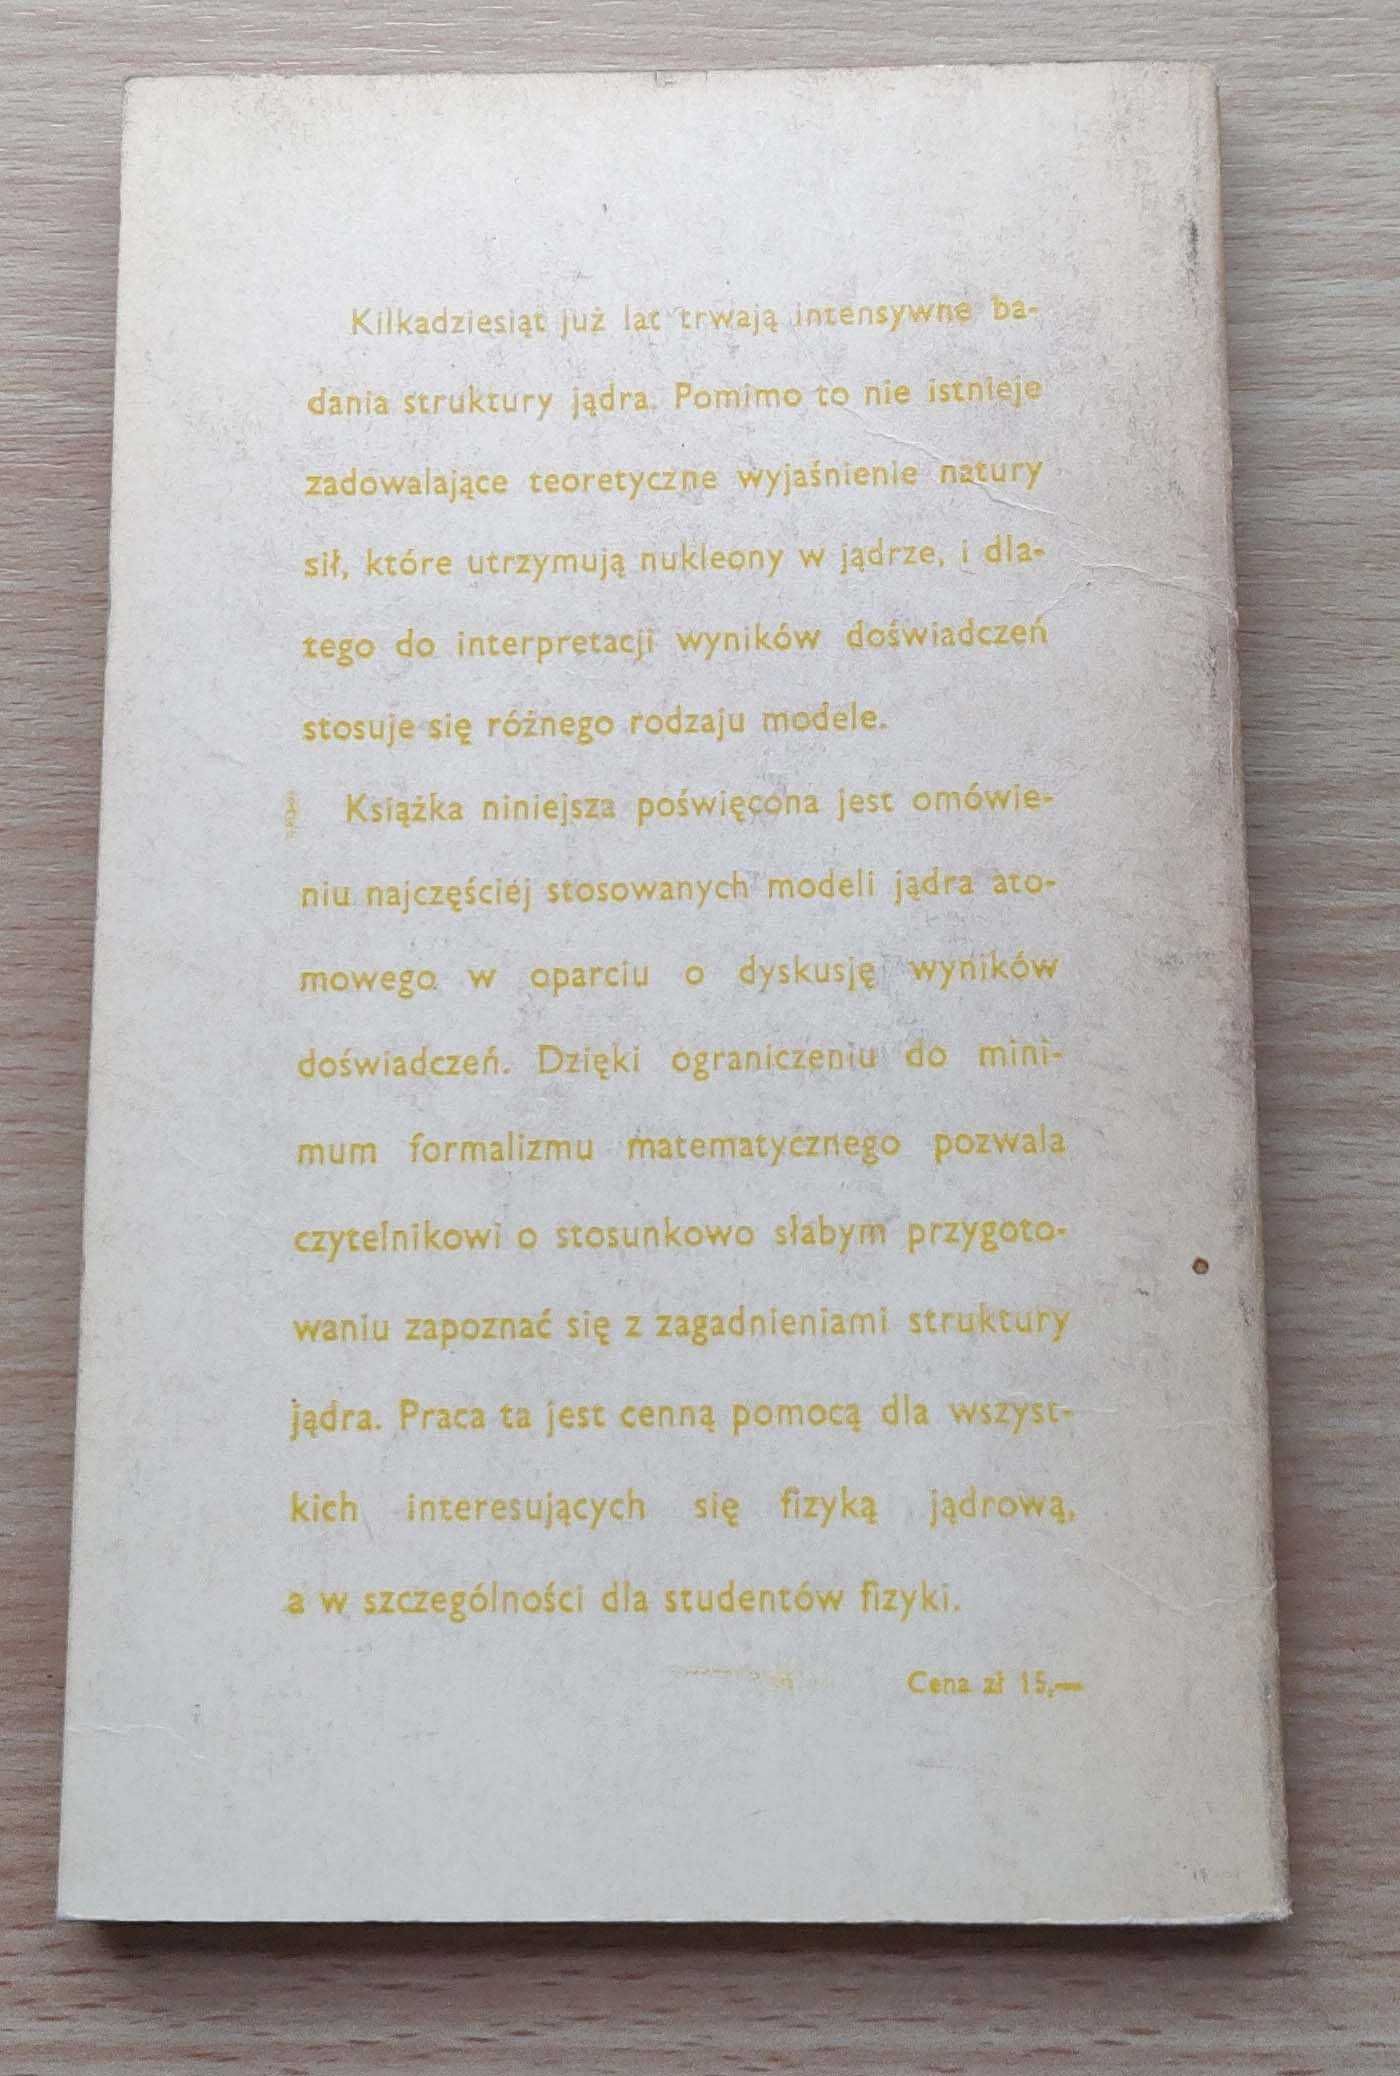 Kilkadziesiąt już lat trwają intensywne ba-
dania struktury jądra. Pomimo to nie istnieje
zadowalające teoretyczne wyjaśnienie natury
sił, które utrzymują nukleony w jądrze, i dla-
tego do interpretacji wyników doświadczeń
stosuje się różnego rodzaju modele.
Książka niniejsza poświęcona jest omówie-
niu najczęściej stosowanych modeli jądra ato-
mowego w oparciu o dyskusję wyników
doświadczeń. Dzięki ograniczeniu do mini-
mum formalizmu matematycznego pozwala
czytelnikowi o stosunkowo słabym przygoto-
waniu zapoznać się z zagadnieniami struktury
jądra. Praca ta jest cenną pomocą dla wszyst-
kich interesujących się fizyką jądrową,
a w szczególności dla studentów fizyki.
Cena zł 15,—